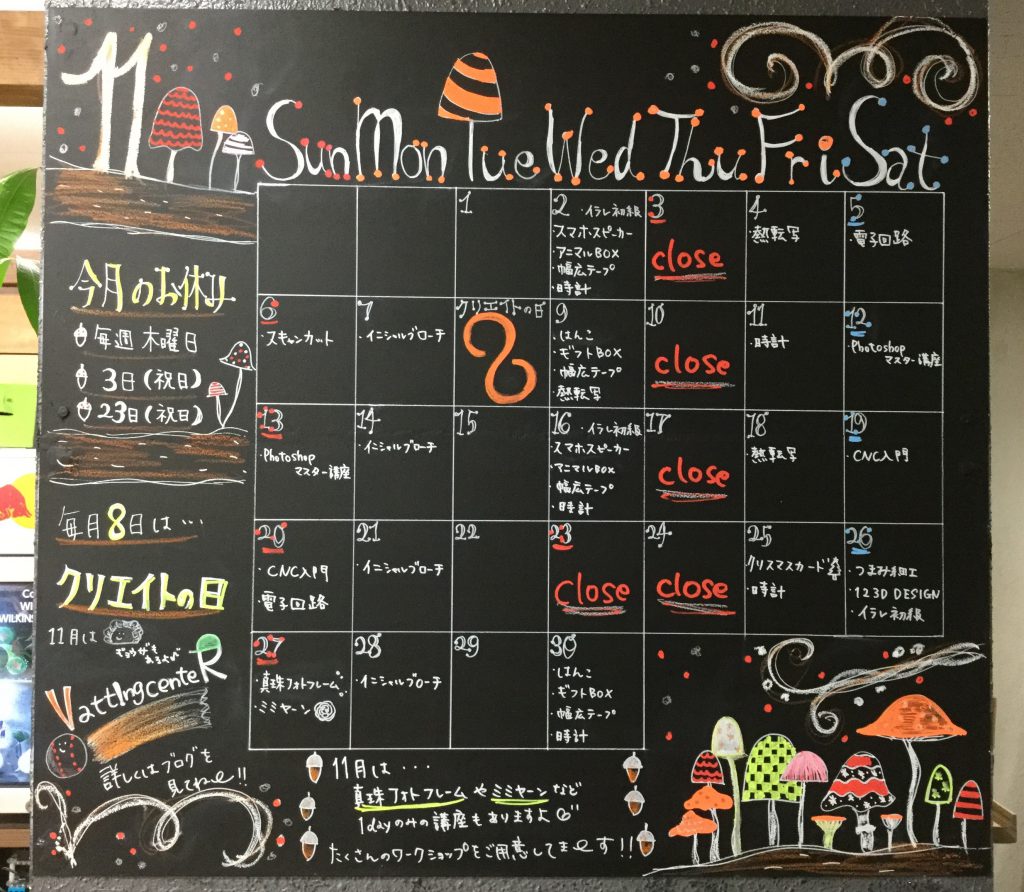 11
Sun Mon Tue Wed Thu Fri Sat
1
2 ・イラレ初級
・スマホスピーカー
・アニマルBOX
・幅広テープ
・時計
3
close
4
・熱転写
5
・電子回路
6
・スキャンカット
7
・イニシャルブローチ
クリエイトの日
8
9
・はんこ
・ギフトBOX
・幅広テープ
・熱転写
10
close
11
・時計
12
・Photoshop
マスター講座
13
・Photoshop
マスター講座
14
・イニシャルブローチ
15
16 ・イラレ初級
・スマホスピーカー
・アニマルBOX
・幅広テープ
・時計
17
close
18
・熱転写
19
・CNC入門
20
・CNC入門
・電子回路
21
・イニシャルブローチ
22
23
close
24
close
25
クリスマスカード
・時計
26
・つまみ細工
・123D DESIGN
・イラレ初級
27
・真珠フォトフレーム
・ミミヤーン
28
・イニシャルブローチ
29
30
・はんこ
・ギフトBOX
・幅広テープ
・時計
今月のお休み
毎週 木曜日
3日(祝日)
23日(祝日)
毎月8日は…
クリエイトの日
11月は
VattIngcenteR
詳しくはブログを
見てねー!!
11月は…
真珠フォトフレームやミミヤーンなど
1dayのみの講座もありますよ
たくさんのワークショップをご用意してまーす!!